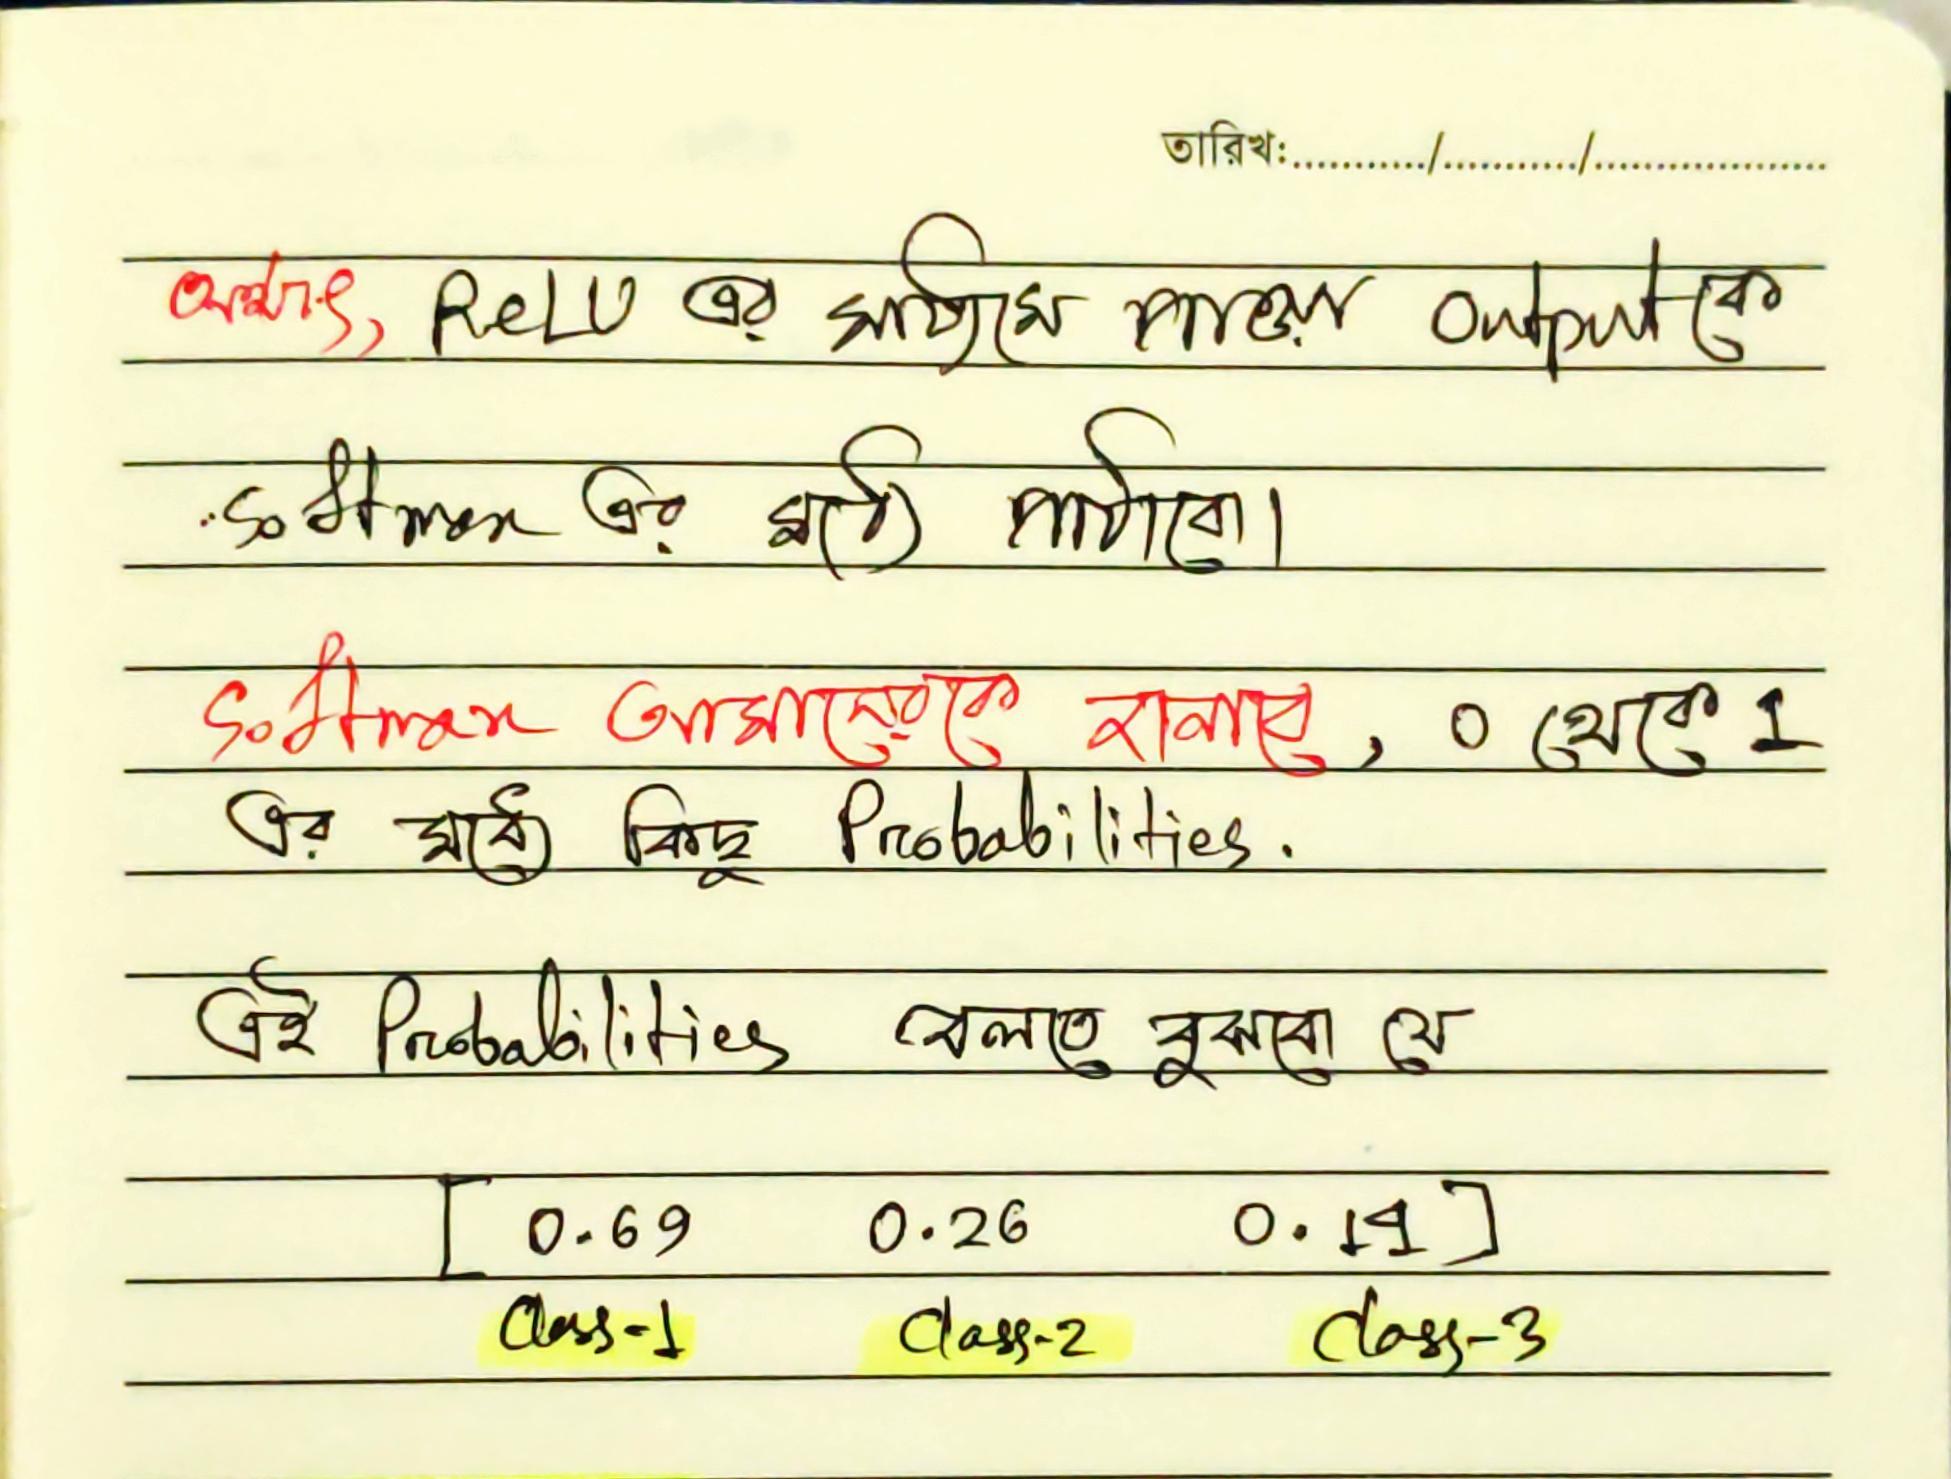 তারিখ:.........../.........../...................
অর্থাৎ, ReLU এর মাধ্যমে পাওয়া Output কে
Softmax এর মধ্যে পাঠাবো।
Softmax আমাদেরকে বানাবে, 0 থেকে 1
এর মধ্যে কিছু Probabilities.
এই Probabilities বলতে বুঝবো যে
[ 0.69 0.26 0.14 ]
Class-1 Class-2 Class-3